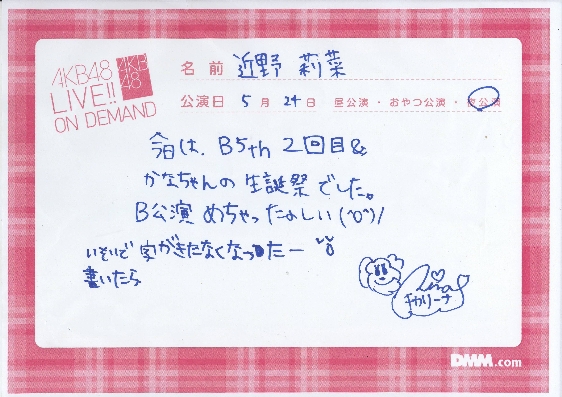 AKB48
LIVE!!
ON DEMAND
AKB
48
名前 近野 莉菜
公演日 5月24日 昼公演・おやつ公演・夜公演
今日は、B5th 2回目&
かなちゃんの生誕祭でした。
B公演めちゃったのしい(^o^)/
いそいで字がきたなくなったー
書いたら
Rina
チカリーナ
DMM.com